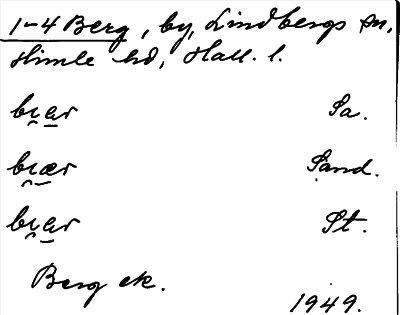 1-4 Berg, by, Lindbergs sn,
Himle hd, Hall. l.
bæar Sa.
bæær Sand.
bæar St.
Berg ek.
1949.